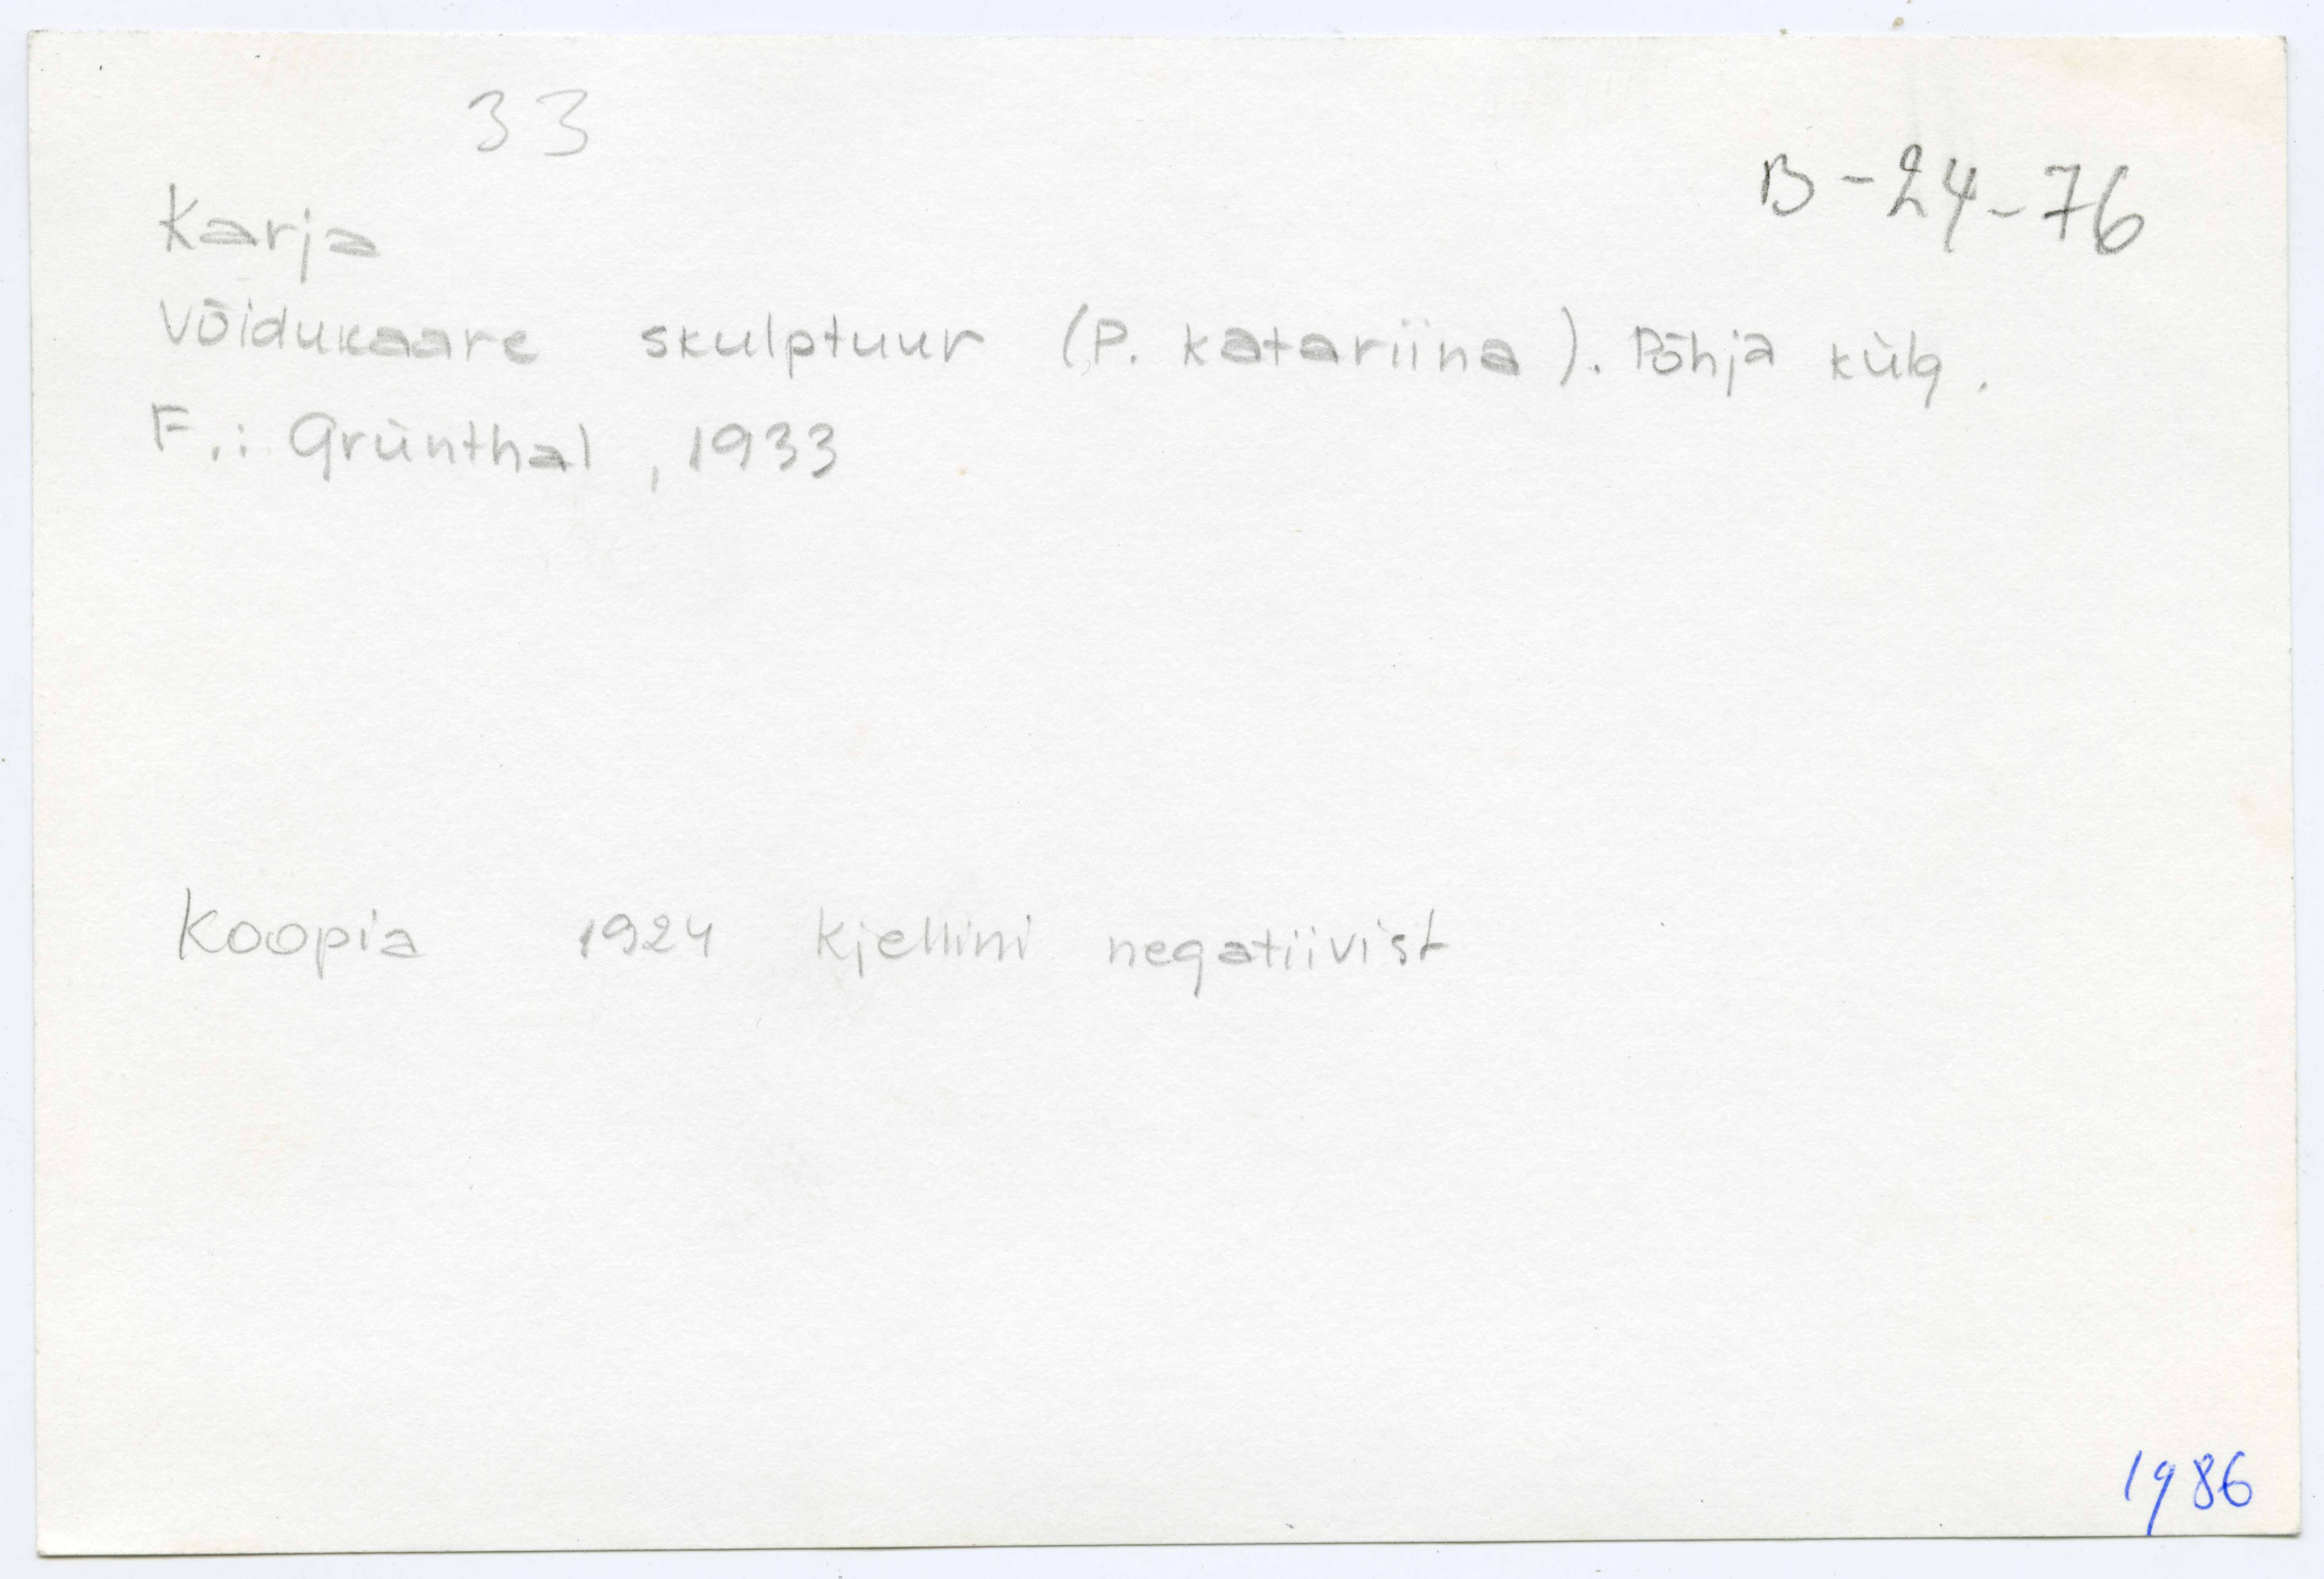 33
B-24-76
Karja
Võidukaare skulptuur (P. Katariina). Põhja külg.
F.: Grünthal, 1933
Koopia 1924 Kjellini negatiivist
1986